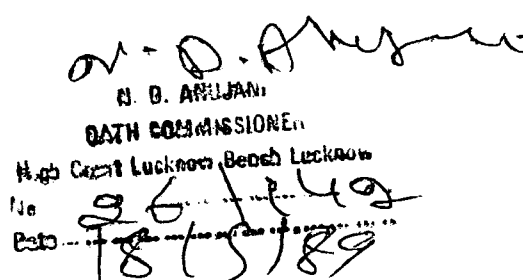 N. D. Anujani
N. D. ANUJANI
OATH COMMISSIONER
High Court Lucknow Bench Lucknow
No 26/142
Date 18/5/89